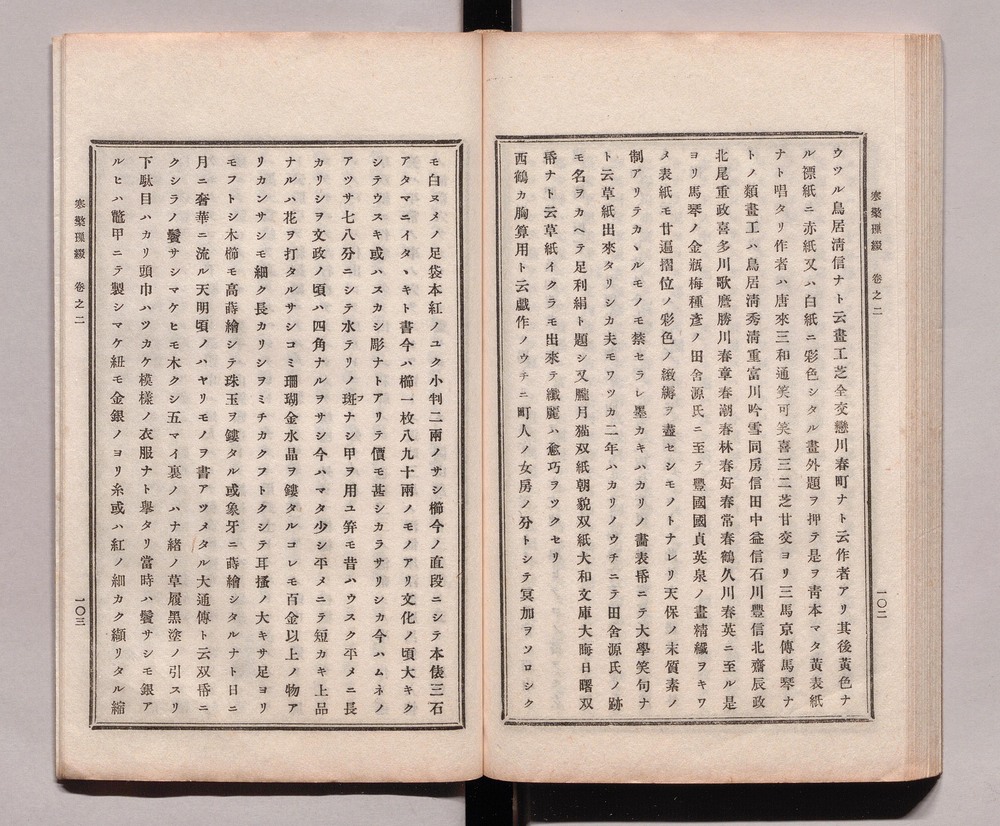 寒檠璅綴　卷之二
一〇二
ウツル鳥居淸信ナト云畫工芝全交戀川春町ナト云作者アリ其後黃色ナ
ル標紙ニ赤紙又ハ白紙ニ彩色シタル畫外題ヲ押テ是ヲ靑本マタ黃表紙
ナト唱タリ作者ハ唐來三和通笑可笑喜三二芝甘交ヨリ三馬京傳馬琴ナ
トノ類畫工ハ鳥居淸秀淸重富川吟雪同房信田中益信石川豐信北齋辰政
北尾重政喜多川歌麿勝川春章春潮春林春好春常春鶴久川春英ニ至ル是
ヨリ馬琴ノ金瓶梅種彥ノ田舍源氏ニ至テ豐國國貞英泉ノ畫精纎ヲキワ
メ表紙モ廿遍摺位ノ彩色ノ緻縟ヲ盡セシモノトナレリ天保ノ末質素ノ
制アリテカヽルモノモ禁セラレ墨カキハカリノ畵表帋ニテ大學笑句ナ
ト云草紙出來タリシカ夫モワツカ二年ハカリノウチニテ田舍源氏ノ跡
モ名ヲカヘテ足利絹ト題シ又朧月猫双紙朝貌双紙大和文庫大晦日曙双
帋ナト云草紙イクラモ出來テ纎麗ハ愈巧ヲツクセリ
西鶴カ胸算用ト云戯作ノウチニ町人ノ女房ノ分トシテ冥加ヲソロシク
モ白ヌメノ足袋本紅ノユク小判二兩ノサシ櫛今ノ直段ニシテ本俵三石
アタマニイタヽキト書今ハ櫛一枚八九十兩ノモノアリ文化ノ頃大キク
シテウスキ或ハスカシ彫ナトアリテ價モ甚シカラサリシカ今ハムネノ
アツサ七八分ニシテ水テリノ斑フナシ甲ヲ用ユ笄モ昔ハウスク平メニ長
カリシヲ文政ノ頃ハ四角ナルヲサシ今ハマタ少シ平メニテ短カキ上品
ナルハ花ヲ打タルサシコミ珊瑚金水晶ヲ鏤タルコレモ百金以上ノ物ア
リカンサシモ細ク長カリシヲミチカクフトクシテ耳搔ノ大キサ足ヨリ
モフトシ木櫛モ高蒔繪シテ珠玉ヲ鏤タル或象牙ニ蒔繪シタルナト日ニ
月ニ奢華ニ流ル天明頃ノハヤリモノヲ書アツメタル大通傳ト云双帋ニ
クシラノ鬢サシマケヒモ木クシ五マイ裏ノハナ緖ノ草履黑塗ノ引スリ
下駄目ハカリ頭巾ハツカケ模樣ノ衣服ナト擧タリ當時ハ鬢サシモ銀ア
ルヒハ鼈甲ニテ製シマケ紐モ金銀ノヨリ糸或ハ紅ノ細カク纈リタル縮
寒檠璅綴　卷之二
一〇三